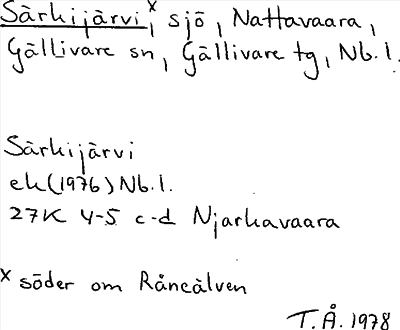 Särkijärvi,ˣ sjö, Nattavaara,
Gällivare sn, Gällivare tg, Nb.l.
Särkijärvi
ek (1976) Nb.l.
27K 4-5 c-d Njarkavaara
ˣ söder om Råneälven
T.Å. 1978